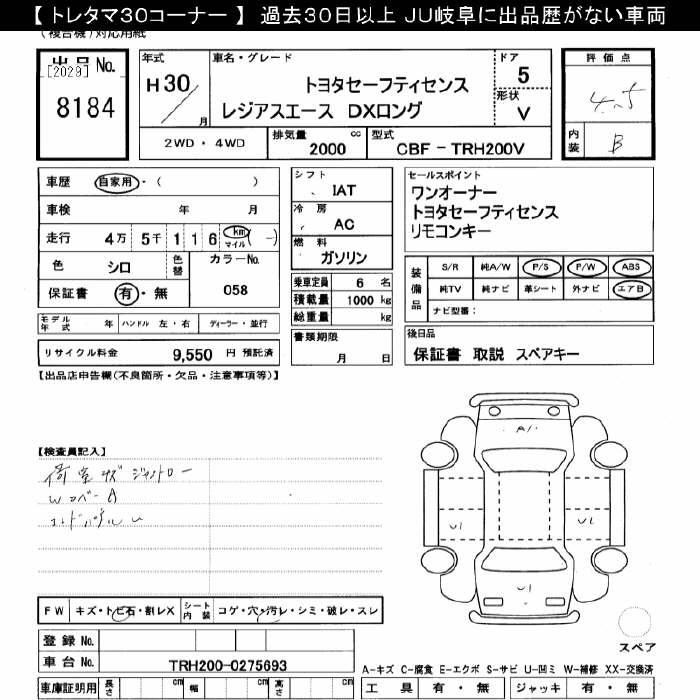 【トレタマ30コーナー】 過去30日以上 JU岐阜に出品歴がない車両
(複合機)対応用紙
出品 No.
[2029]
8184
年式
H30
月
車名・グレード
トヨタセーフティセンス
レジアスエース DXロング
ドア
5
形状
V
評価点
4.5
内装
B
2WD・4WD
排気量
cc
2000
型式
CBF-TRH200V
車歴
自家用・( )
車検 年 月
走行 4万 5千 1 1 6 km マイル (-)
色 シロ
色替
カラーNo.
058
保証書 有・無
シフト
IAT
冷房
AC
燃料
ガソリン
乗車定員 6 名
積載量 1000 kg
総重量 kg
書類期限
月 日
セールスポイント
ワンオーナー
トヨタセーフティセンス
リモコンキー
装備品
S/R 純A/W P/S P/W ABS
純TV 純ナビ 革シート 外ナビ エアB
ナビ型番:
モデル年式 年 ハンドル 左・右 ディーラー・並行
リサイクル料金 9,550 円 預託済
後日品
保証書 取説 スペアキー
【出品店申告欄(不良箇所・欠品・注意事項等)】
【検査員記入】
荷室キズ ジャッキロー
WコベーA
エンドパネルU
A1
U1
U1
U1
FW キズ・トビ石・割レX シート内装 コゲ・穴・汚レ・シミ・破レ・スレ
スペア
登録 No.
車台 No. TRH200-0275693
A-キズ C-腐食 E-エクボ S-サビ U-凹ミ W-補修 XX-交換済
車庫証明用 長さ cm 幅 cm 高さ cm
工具 有・無 ジャッキ 有・無